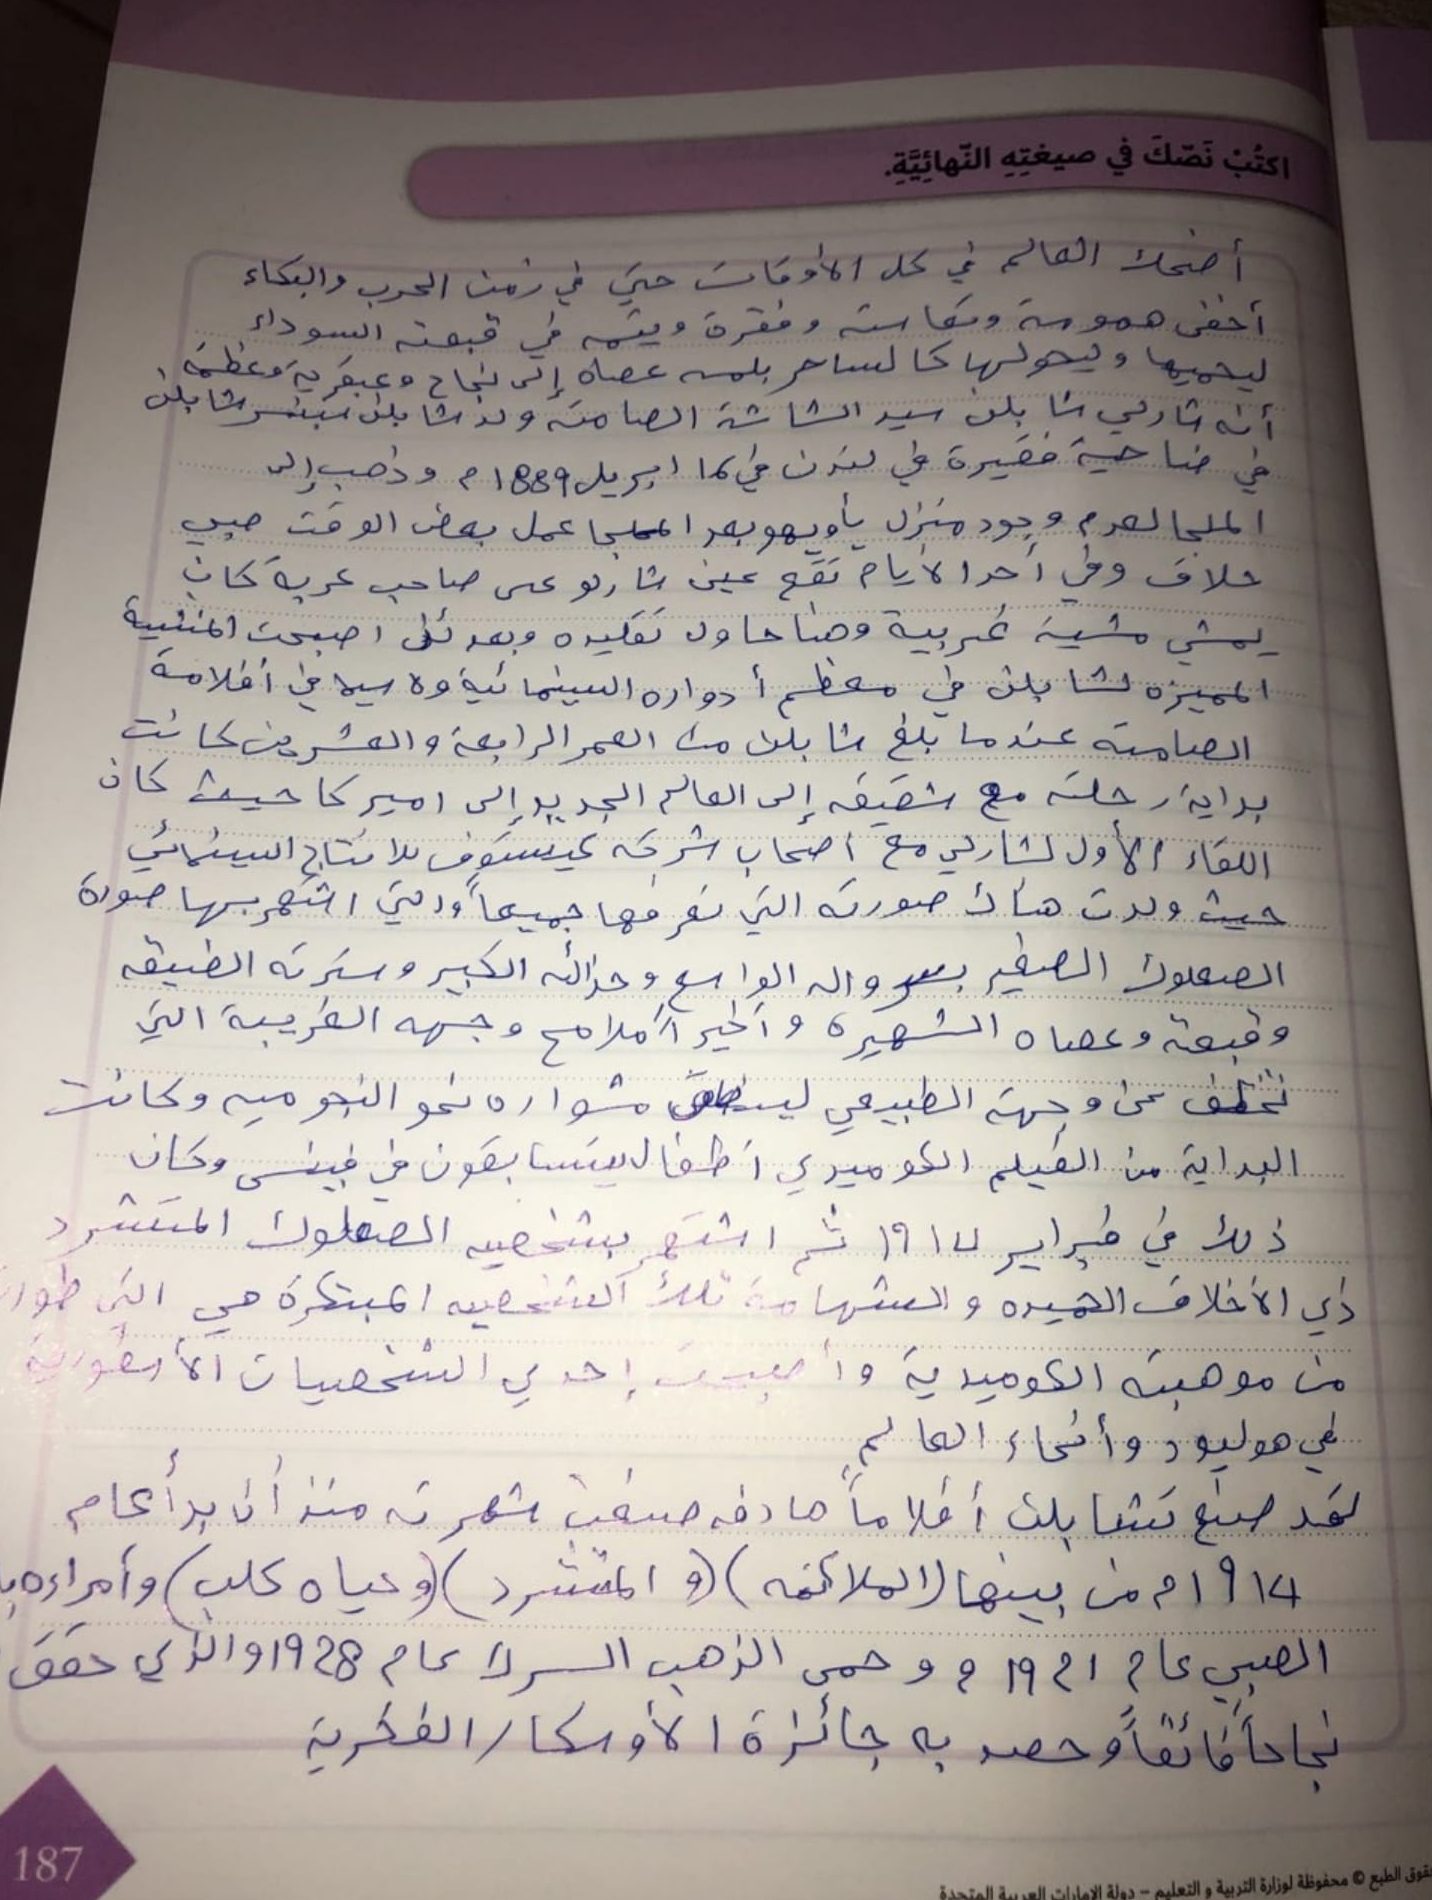 اكتُبْ نَصّكَ في صيغتِهِ النّهائِيَّةِ.
أضحك العالم في كل الأوقات حتى في زمن الحرب والبكاء
أخفى همومة وتعاسته وفقرة ويتمه في قبعته السوداء
ليحميها ويحولها كالساحر بلمسه عصاه إلى نجاح وعبقرية وعظمة
أنه شارلي شابلن سيد الشاشة الصامته ولد شابلن سبنسر شابلن
في ضاحية فقيرة في لندن في ١٦ ابريل 1889م وذهب إلى
الملجا لعدم وجود منزل يأويهو بعد الملجا عمل بعض الوقت صبي
حلاق وفي أحد الأيام تقع عين شارلو على صاحب عربة كان
يمشي مشية غريبية وهنا حاول تقليده وبعد اصبحت المشية
المميزه لشابلن في معظم أدواره السينمائية ولاسيما في أفلامة
الصامته عندما بلغ شابلن من العمر الرابعة والعشرين كانت
بداية رحلته مع شقيقه إلى العالم الجديد إلى اميركا حيث كان
اللقاء الأول لشارلي مع أصحاب شركه كيستون للانتاج السينمائي
حيث ولدت هناك صورته التي نعرفها جميعاً والتي اشتهر بها صورة
الصعلوك الصغير بسرواله الواسع وحذائه الكبير وسترته الضيقه
وقبعة وعصاه الشهيرة وأخيرا ملامح وجهه الغريبة التي
تختلف عن وجهته الطبيعي لينطلق مشواره نحو النجوميه وكانت
البداية من الفيلم الكوميدي أطفال يتسابقون في فينسى وكان
ذلك في فبراير ١٩١٤ ثم اشتهر بشخصيه الصعلوك المتشرد
ذي الأخلاق الحميده والشهامة تلك الشخصيه المبتكرة هي التي طورت
من موهبته الكوميدية وأصبحت إحدي الشخصيات الأسطورية
في هوليود وأنحاء العالم
لقد صنع تشابلن أفلاماً هادفه صنعت شهرته منذ أن بدأ عام
١٩١٤م من بينها (الملاكمه) (و المتشرد) (وحياه كلب) وأمراءه با
الصبي عام ١٩٢١م وحمى الذهب السرك عام 1928 والذي حقق
نجاحاً فائقاً وحصد به جائزة الأوسكار الفخرية
187
حقوق الطبع © محفوظة لوزارة التربية و التعليم – دولة الإمارات العربية المتحدة